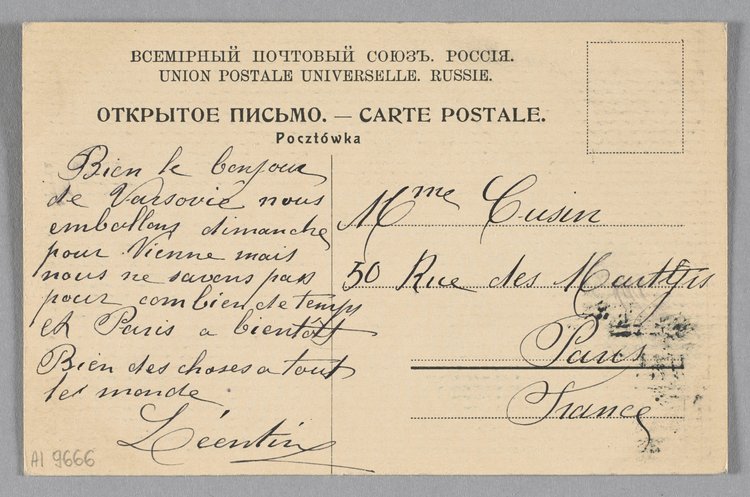 ВСЕМІРНЫЙ ПОЧТОВЫЙ СОЮЗЪ. РОССІЯ.
UNION POSTALE UNIVERSELLE. RUSSIE.
ОТКРЫТОЕ ПИСЬМО. — CARTE POSTALE.
Pocztówka
Bien le bonjour
de Varsovie nous
emballons dimanche
pour Vienne mais
nous ne savons pas
pour combien de temps
et Paris a bientôt
Bien des choses a tout
le monde
Léentin
Mme Cusin
50 Rue des Martyrs
Paris
France
AI 9666